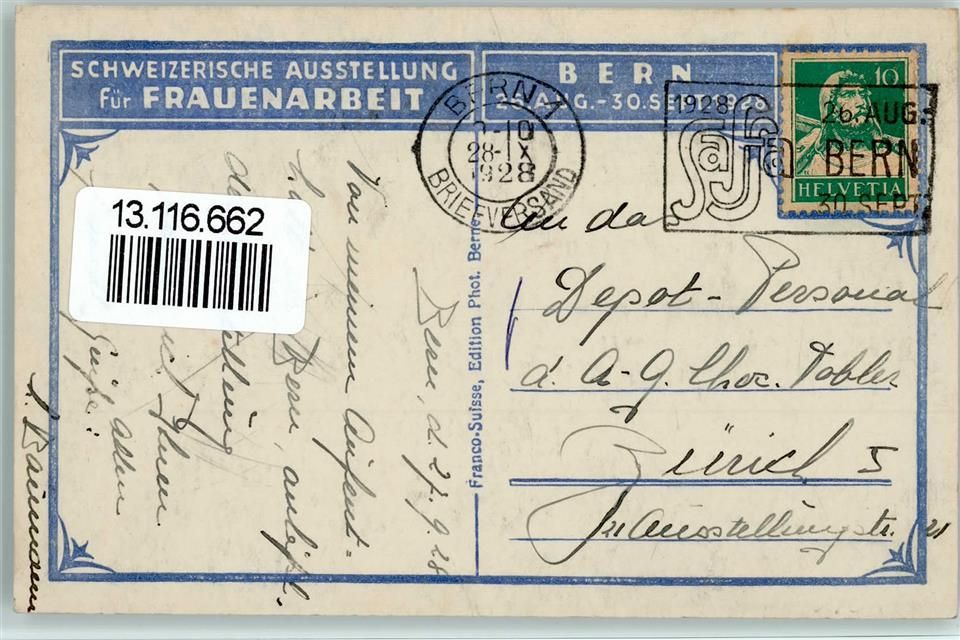 SCHWEIZERISCHE AUSSTELLUNG
für FRAUENARBEIT
BERN
26. AUG. - 30. SEPT. 1928
BERN 1
28.IX
1928
BRIEFVERSAND
1928
Saffa
26. AUG.
BERN
30 SEPT
10
HELVETIA
13.116.662
Franco-Suisse, Edition Phot. Berne
Bern, d. 27.9.28
Von meinem Aufent=
Bern, anläßl.
Ihnen
allen
Grüße!
An das
Depot-Personal
d. A-G. Choc. Tobler
Zürich 5
Ausstellungstr. 21